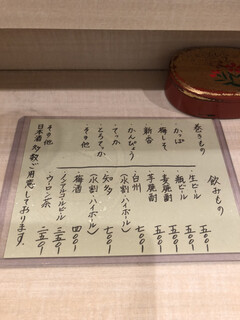 巻きもの
かっぱ
梅しそ
新香
かんぴょう
てっか
とろてっか
その他
飲みもの
生ビール 五五〇
瓶ビール 五五〇
麦焼酎 五五〇
芋焼酎 五五〇
白州 七〇〇
(水割・ハイボール)
知多 七〇〇
(水割・ハイボール)
梅酒 四〇〇
ノンアルコールビール 三五〇
ウーロン茶 二五〇
その他
日本酒多数ご用意しております。